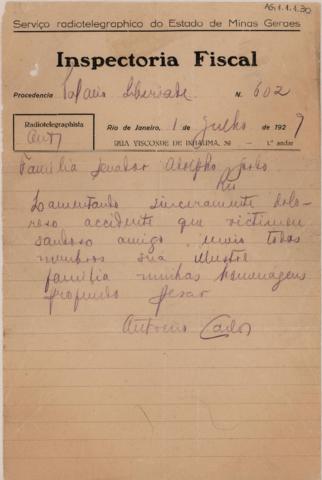 AG1.1.1.30
Serviço radiotelegraphico do Estado de Minas Geraes
Inspectoria Fiscal
Procedencia Palacio Liberdade N. 602
Radiotelegraphista
Rio de Janeiro, 1 de julho de 1929
RUA VISCONDE DE INHAUMA, 39 — 1.º andar
Familia Senador Adolpho Gordo
Rio
Lamentando sinceramente dolo-
roso accidente que victimou
saudoso amigo envio todos
membros sua illustre
familia minhas homenagens
profundo pesar
Antonio Carlos